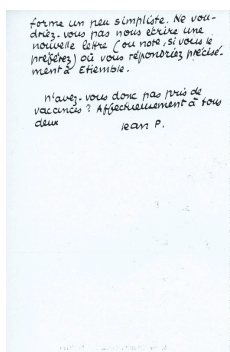 forme un peu simpliste. Ne vou-
driez-vous pas nous écrire une
nouvelle lettre (ou note, si vous le
préférez) où vous répondriez précisé-
ment à Etiemble.
n'avez-vous donc pas pris de
vacances ? Affectueusement à tous
deux
Jean P.